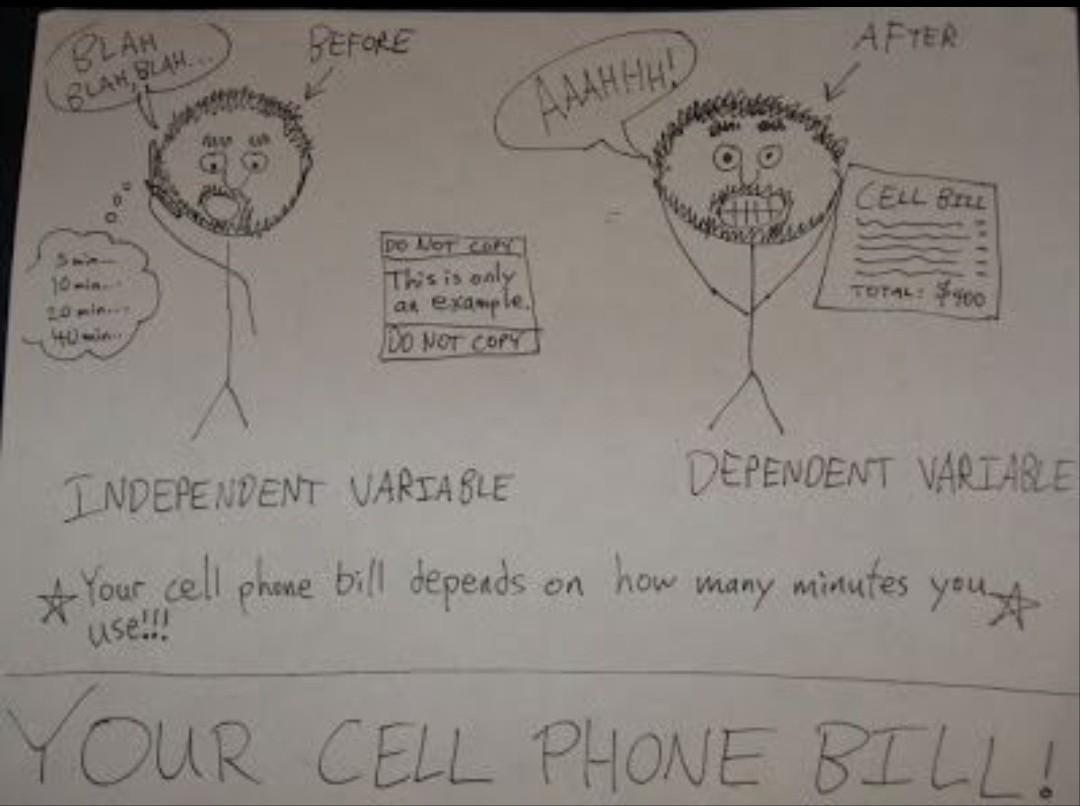 BLAH
BLAH, BLAH...
BEFORE
5 min...
10 min...
20 min...
40 min...
DO NOT COPY
This is only
an example.
DO NOT COPY
AAAHHH!
AFTER
CELL BILL
TOTAL: $900
INDEPENDENT VARIABLE
DEPENDENT VARIABLE
Your cell phone bill depends on how many minutes you
use!!!
YOUR CELL PHONE BILL!